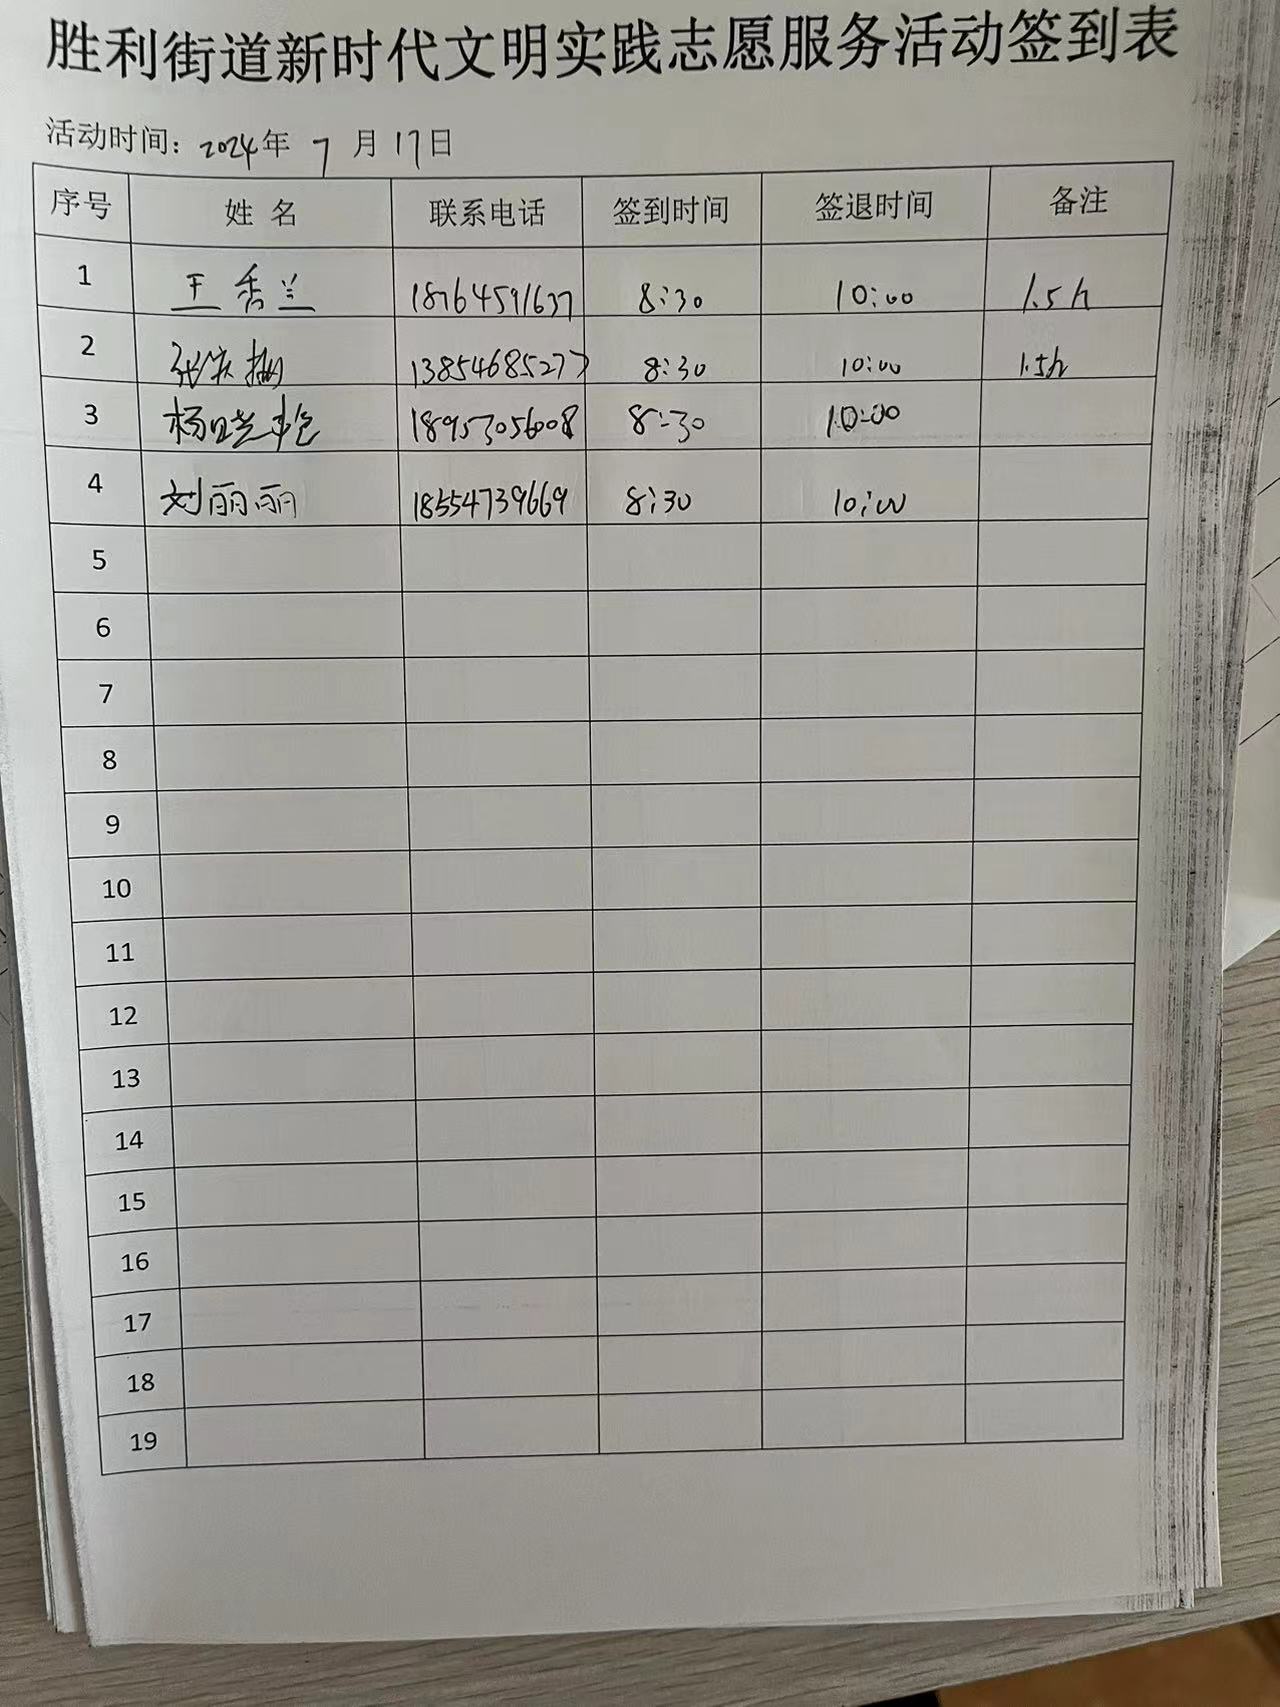 胜利街道新时代文明实践志愿服务活动签到表
活动时间：2024年 7 月 17日
序号 姓 名 联系电话 签到时间 签退时间 备注
1 王秀兰 18764591637 8:30 10:00 1.5h
2 13854685277 8:30 10:00 1.5h
3 杨晓艳 18953056008 8:30 10:00
4 刘丽丽 18554739669 8:30 10:00
5
6
7
8
9
10
11
12
13
14
15
16
17
18
19